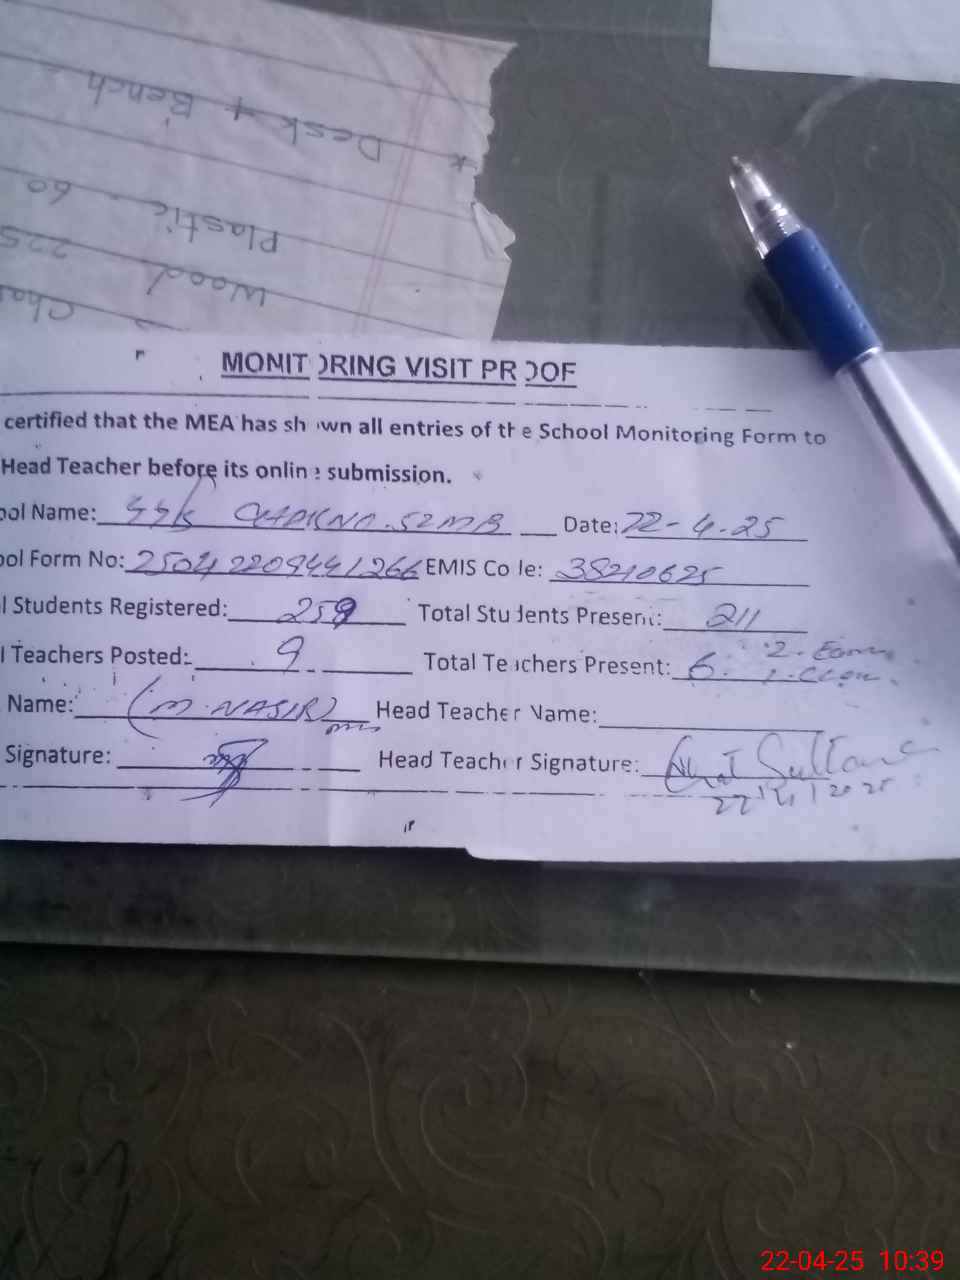 * Desk + Bench
Plastic - 60
Wood 225
Cha
MONITORING VISIT PROOF
certified that the MEA has shown all entries of the School Monitoring Form to
Head Teacher before its online submission.
ool Name: CHAK NO. 52MB Date: 22-4-25
ool Form No: 25042209441266 EMIS Code: 38210625
l Students Registered: 259 Total Students Present: 211
l Teachers Posted: 9 Total Teachers Present: 6. 2.
Name: (M.NASIR) Head Teacher Name:
Signature: Head Teacher Signature: Sultana
22/4/2025
22-04-25 10:39